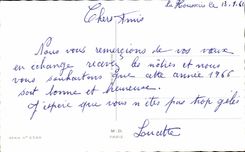 le 13.1.66
Chers Amis
Nous vous remercions de vos voeux
en échange recevez les nôtres et nous
vous souhaitons que cette année 1966
soit bonne et heureuse.
J'espère que vous n'êtes pas trop gelés
Lucette
M.D.
PARIS